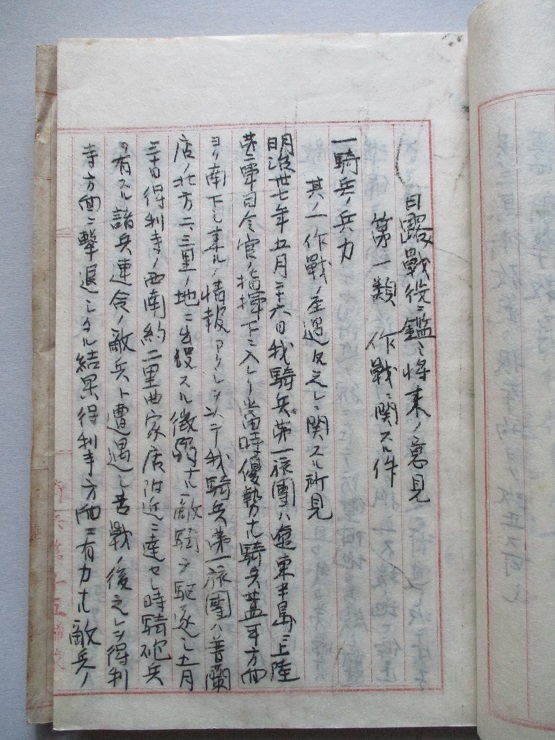 日露戰役ニ鑑ミ將来ノ意見
第一類 作戰ニ関スル件
一騎兵ノ兵力
其ノ一作戰ノ至過及之レニ関スル所見
明治卅七年五月二十六日我騎兵第一旅團ハ遼東半島ニ上陸
第二軍司令官ノ指揮下ニ入レリ当時優勢ナル騎兵蓋平方面
ヨリ南下シ来ルノ情報アリシヲ以テ我騎兵第一旅團ハ普蘭
店ノ北方二三里ノ地ニ出没スル微弱ナル敵騎ヲ駆逐シ五月
三十日得利寺ノ西南約二里曲家店附近ニ達セシ時騎砲兵
ヲ有スル諸兵連合ノ敵兵ト遭遇シ苦戰ノ後之レヲ得利
寺方面ニ撃退シタル結果得利寺方面ニ有力ナル敵兵ノ